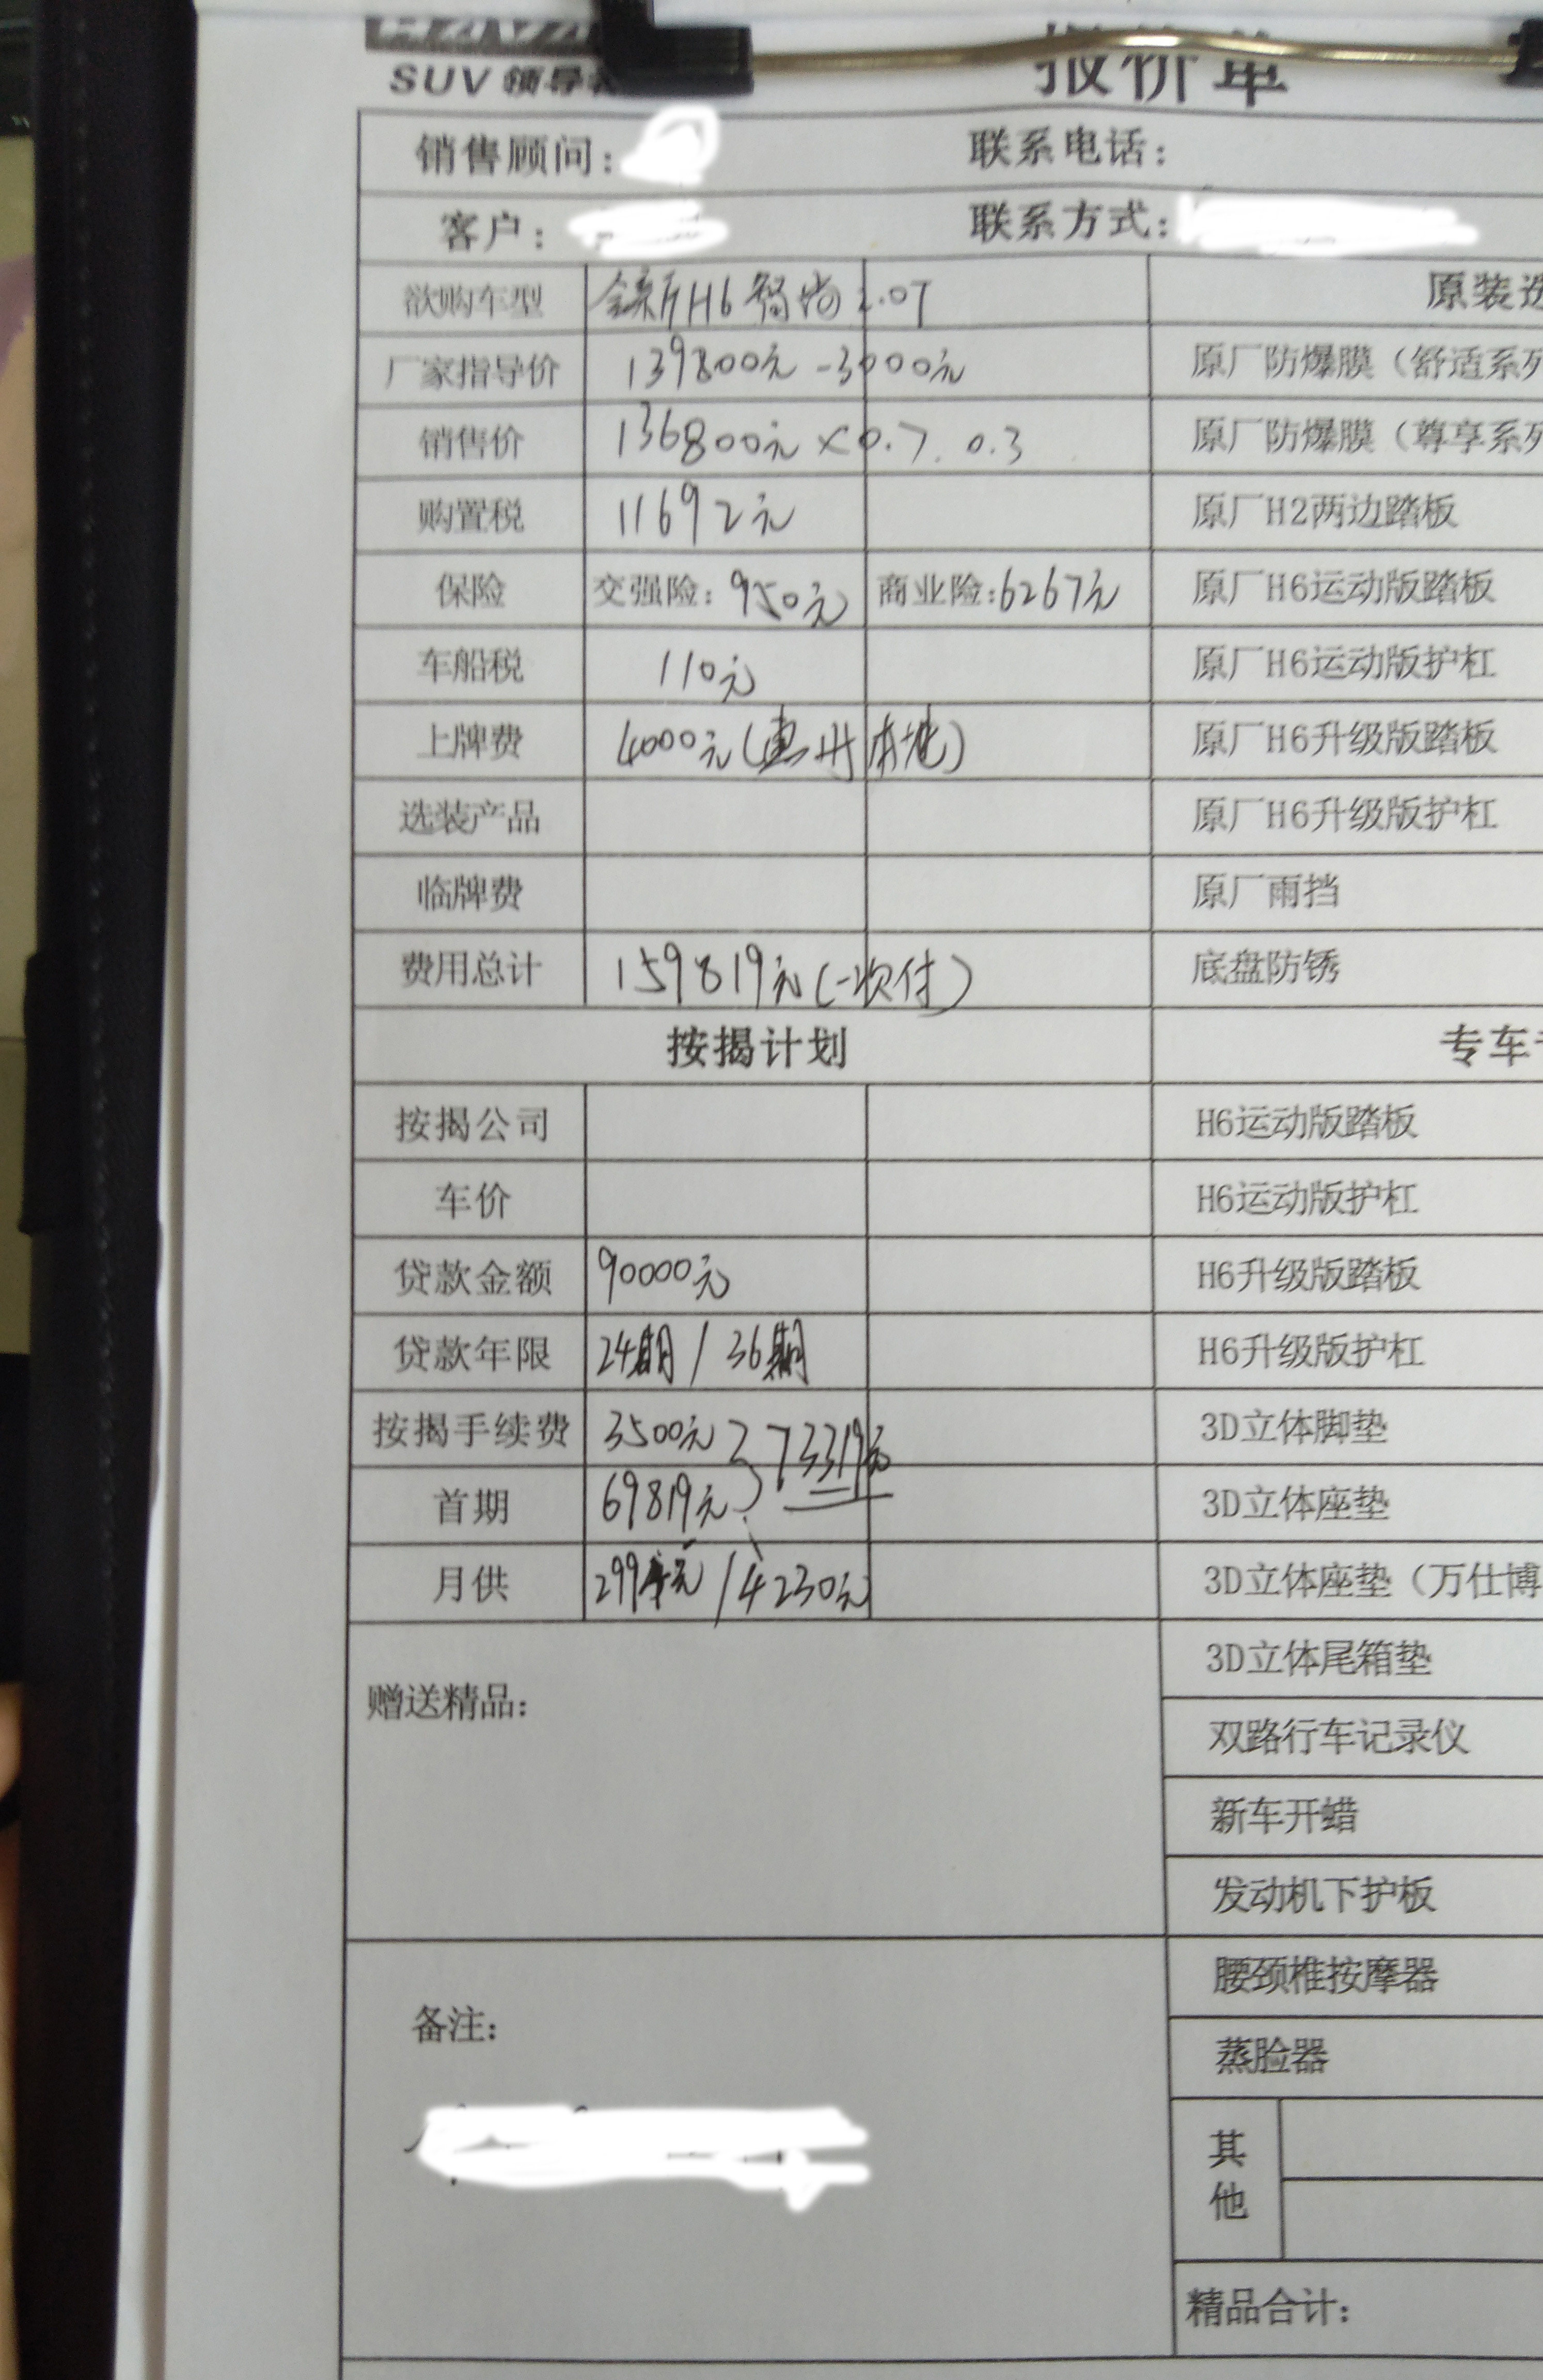 SUV 领导者
报价单
销售顾问： 联系电话：
客户： 联系方式：
欲购车型 全新H6 智尚 2.0T 原装选
厂家指导价 139800元 -3000元 原厂防爆膜（舒适系列
销售价 136800元 ×0.7. 0.3 原厂防爆膜（尊享系列
购置税 11692元 原厂H2两边踏板
保险 交强险：950元 商业险：6267元 原厂H6运动版踏板
车船税 110元 原厂H6运动版护杠
上牌费 4000元（惠州本地） 原厂H6升级版踏板
选装产品 原厂H6升级版护杠
临牌费 原厂雨挡
费用总计 159819元（一次付） 底盘防锈
按揭计划 专车专
按揭公司 H6运动版踏板
车价 H6运动版护杠
贷款金额 90000元 H6升级版踏板
贷款年限 24期 / 36期 H6升级版护杠
按揭手续费 3500元 73319元 3D立体脚垫
首期 69819元 3D立体座垫
月供 2994元 / 4230元 3D立体座垫（万仕博
赠送精品： 3D立体尾箱垫
双路行车记录仪
新车开蜡
发动机下护板
腰颈椎按摩器
备注：
蒸脸器
其他
精品合计：